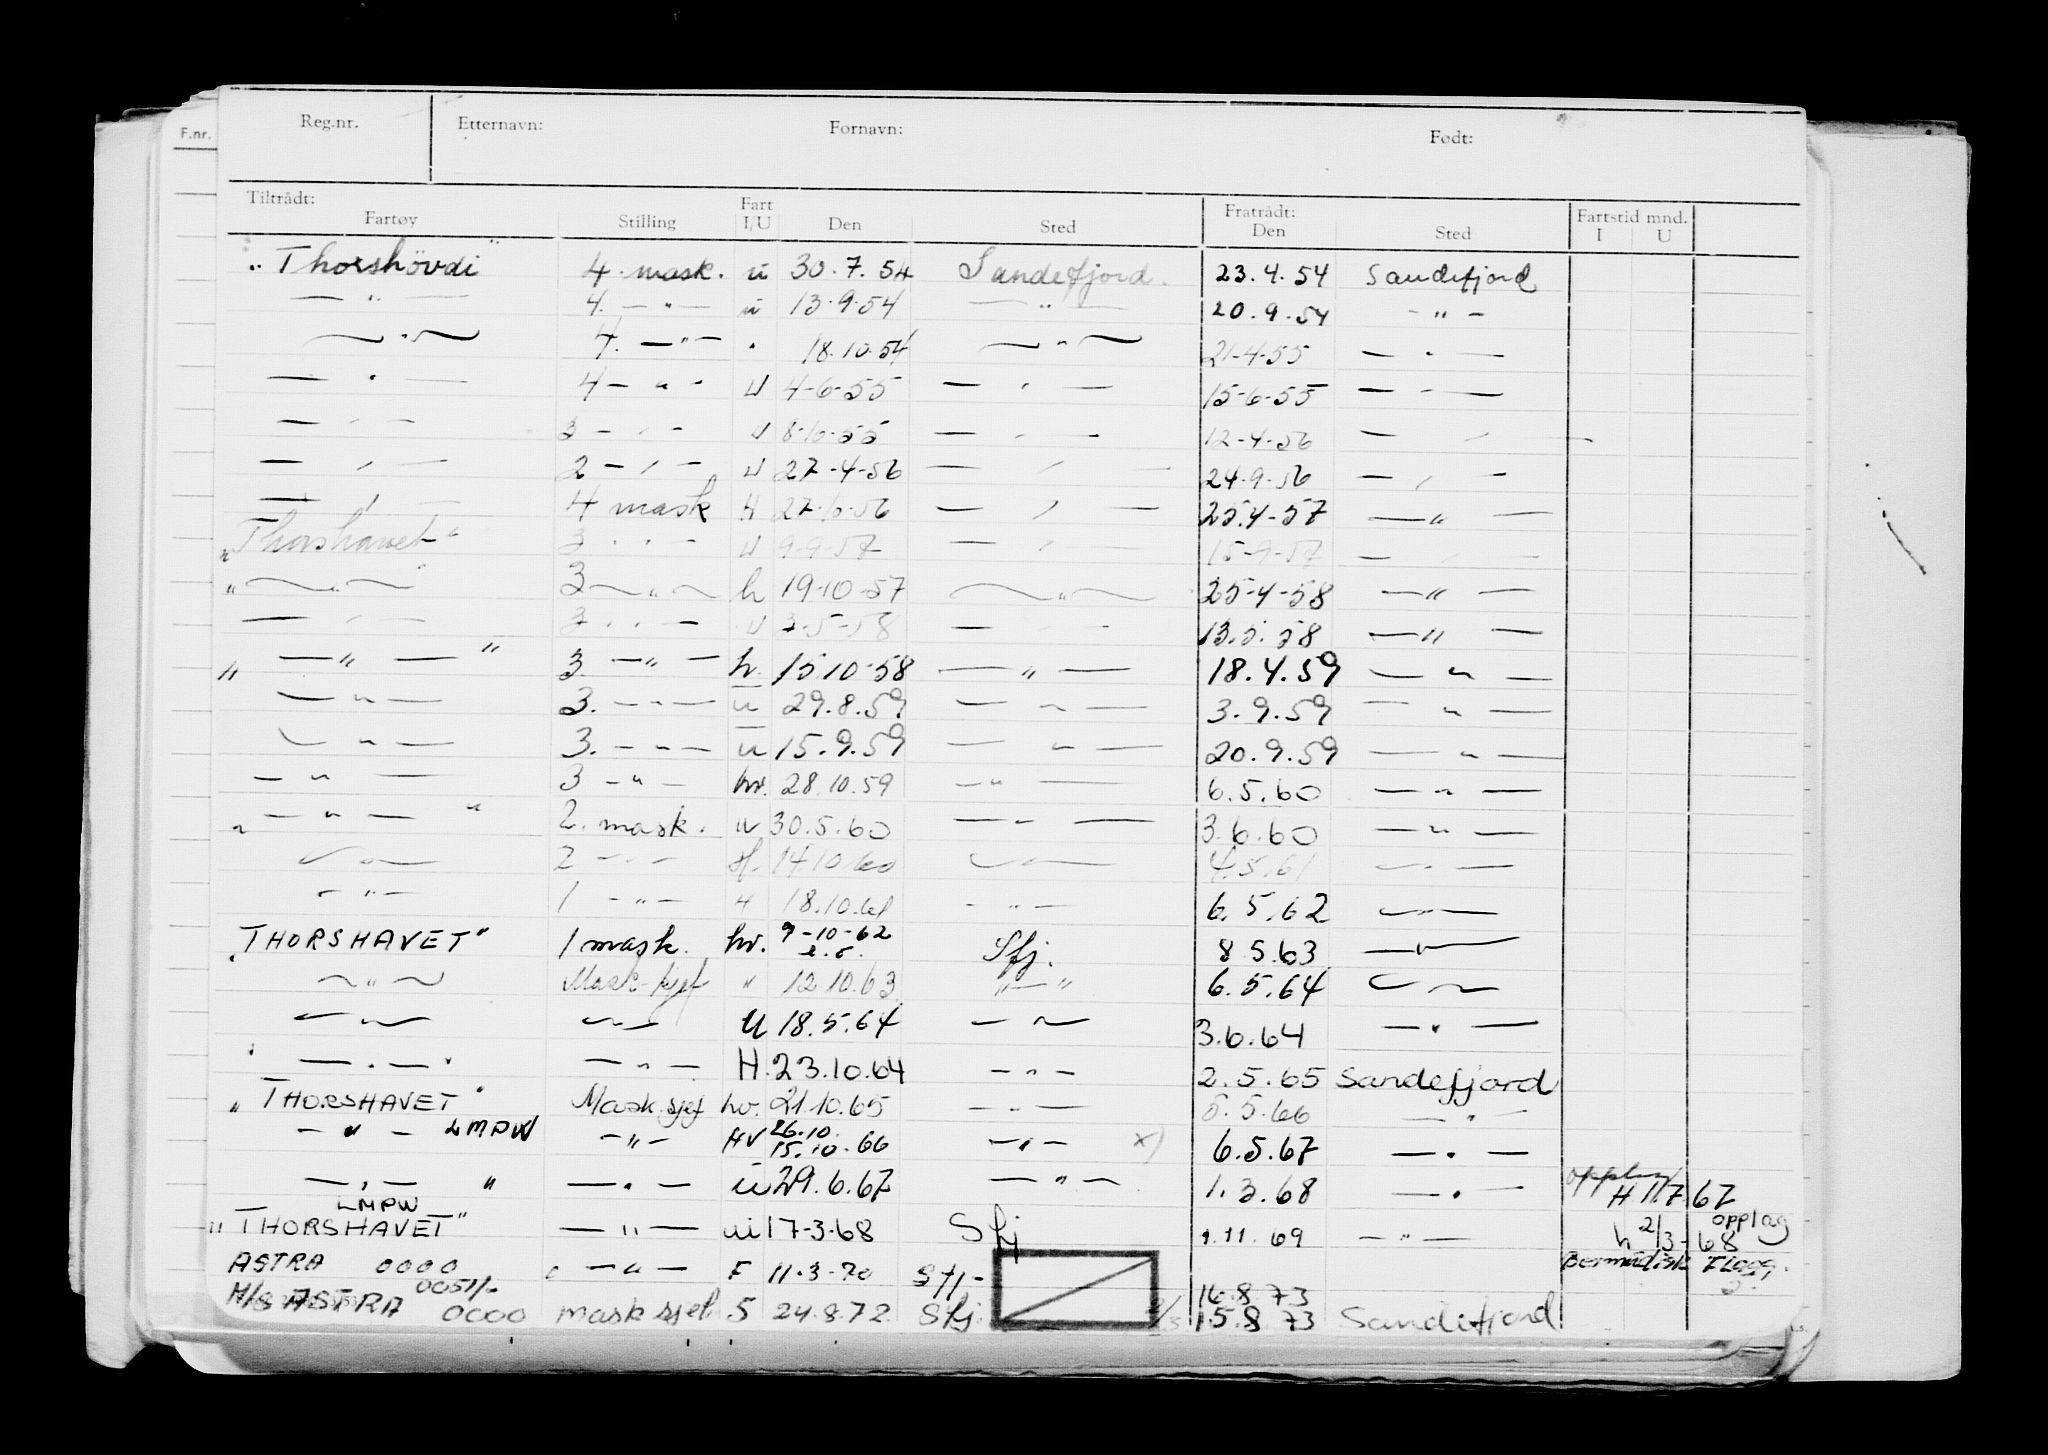 F.nr.
Reg.nr. Etternavn: Fornavn: Født:
Tiltrådt: Fart Fratrådt: Fartstid mnd.
Fartøy Stilling I/U Den Sted Den Sted I U
"Thorshövdi" 4. mask. u 30.7.54 Sandefjord. 23.4.54 Sandefjord
— " — 4. — " — u 13.9.54 — " — 20.9.54 - " -
— " — 4. — " — " 18.10.54 — " — 21-4-55 — " —
— " — 4 — " - U 4-6-55 — " — 15-6-55 — " —
— " — 3 — " — U 8-10-55 — " — 12-4-56 — " —
— " — 2 — " — U 27-4-56 — " — 24-9-56 — " —
— " — 4 mask H 27-10-56 — " — 25.4-57 — " —
"Thorshavet" 3 - " - U 9-9-57 — " — 15-9-57 — " —
" — " — " 3 — " — h 19-10-57 — " — 25-4-58 — " —
— " — 3 - " — U 3-5-58 — " — 13.5.58 — " —
" — " — " 3. — " — h. 15.10-58 — " — 18.4.59 — " —
— " — 3. — " — u 29.8.59 — " — 3.9.59 — " —
— " — 3. — " — u 15.9.59 — " — 20.9.59 — " —
— " — 3 — " — hv. 28.10.59 — " — 6.5.60 — " —
" — " — " 2. mask. u 30.5.60 — " — 3.6.60 — " —
— " — 2 — " — 14.10.60 — " — 4.5.61 — " —
— " — 1 — " — " 18.10.61 — " — 6.5.62 — " —
"THORSHAVET" 1 mask. hv. 9-10-62 Sfj. 8.5.63 — " —
— " — Mask.sjef " 12.10.63 " — " 6.5.64 — " —
— " — — " — U 18.5.64 — " — 3.6.64 — " —
" — " — " — " — H. 23.10.64 — " — 2.5.65 Sandefjord
"THORSHAVET" Mask.sjef hv. 21.10.65 — " — 5.5.66 — " —
— " — LMPW — " — HV 26.10. 15.10.66 — " — x) 6.5.67 — " —
— " — " — " — u 29.6.67 — " — 1.3.68 — " — opplag H 11.7.67
LMPW
"THORSHAVET" — " — ui 17-3-68 Sfj 1.11.69 — " — h 2/3-68 opplag
ASTRA 0000 — " — F 11.3-70 Sfj- 16.8.73 Bermudisk Flagg.
0051/-
M/S ASTRA 0000 mask sjef S 24.8.72 Sfj. 15.8.73 Sandefjord